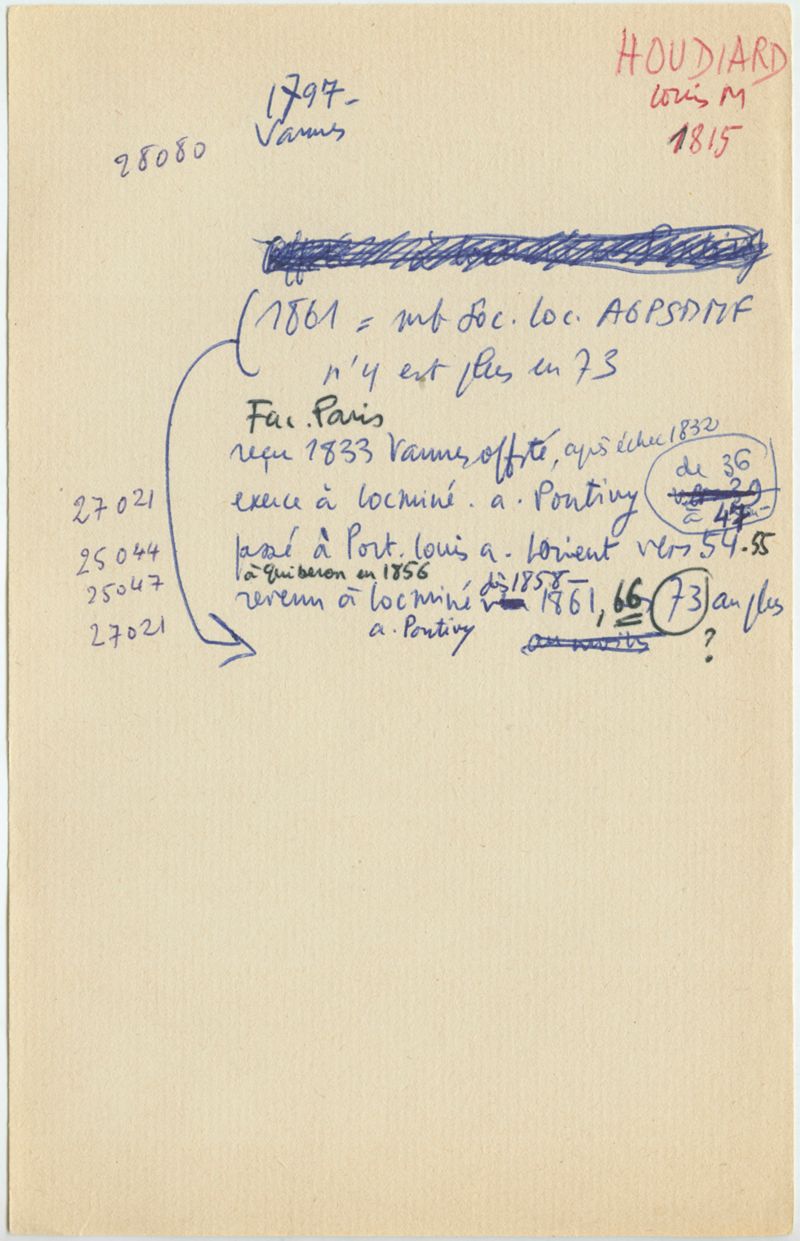 HOUDIARD
Louis M
1815
1797-
Vannes
28080
1861 = mb Soc. loc. AGPSDMF
n'y est plus en 73
Fac. Paris
reçu 1833 Vannes offté, après échec 1832
de 36
à 47
27021 exerce à Locminé. a. Pontivy
25044 passé à Port. Louis a. Lorient vers 54.55
25047 à Quiberon en 1856
revenu à Locminé dès 1858- 1861, 66, 73 au plus
27021 a. Pontivy
?